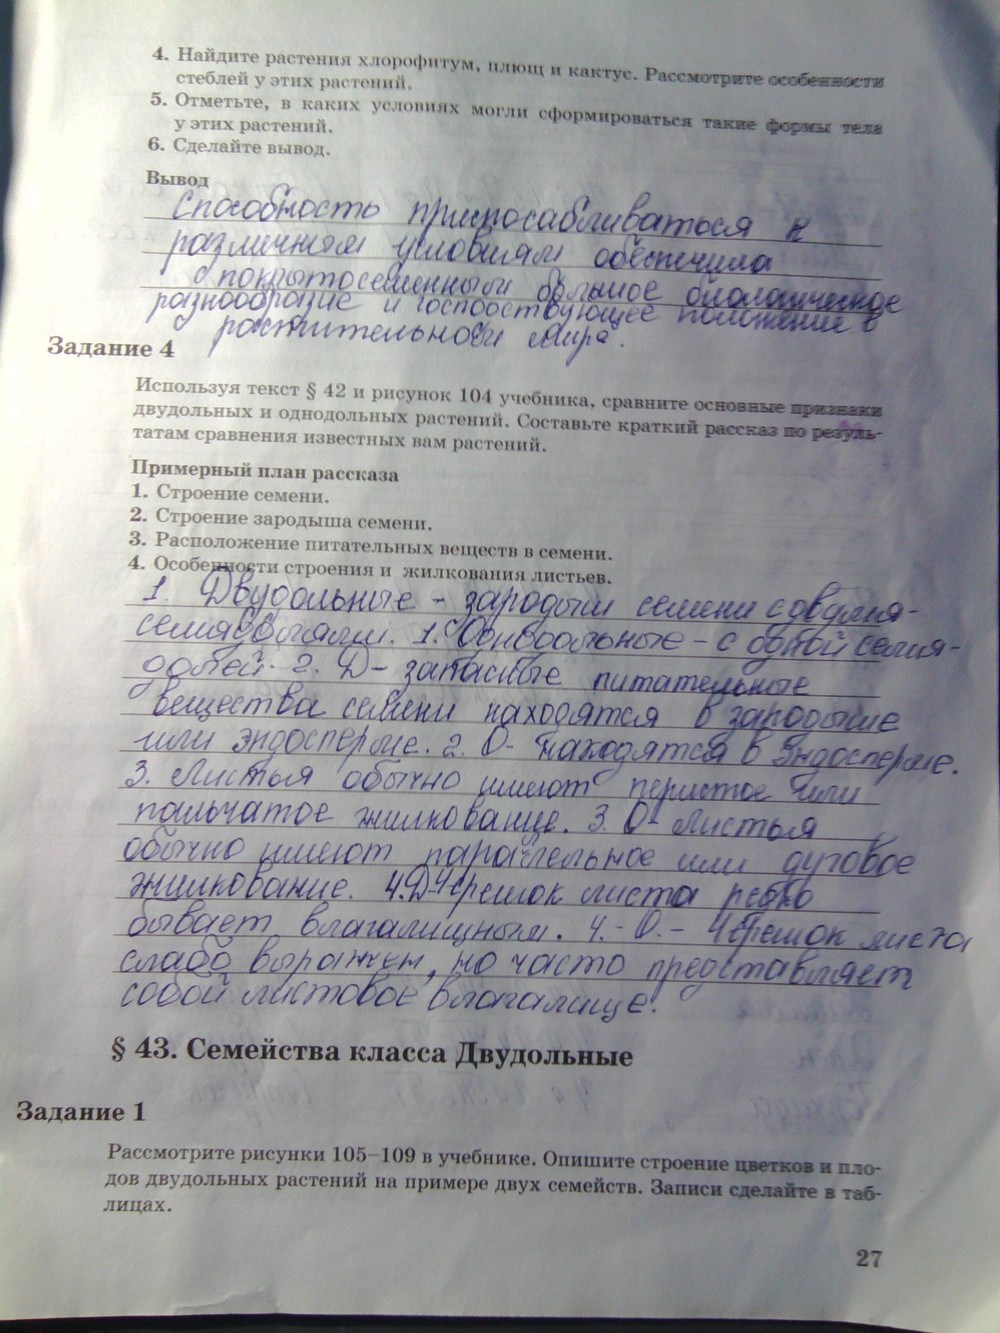 4. Найдите растения хлорофитум, плющ и кактус. Рассмотрите особенности
стеблей у этих растений.
5. Отметьте, в каких условиях могли сформироваться такие формы тела
у этих растений.
6. Сделайте вывод.
Вывод
Способность приспосабливаться к
различным условиям обеспечила
покрытосеменным большое биологическое
разнообразие и господствующее положение в
растительности мира.
Задание 4
Используя текст § 42 и рисунок 104 учебника, сравните основные признаки
двудольных и однодольных растений. Составьте краткий рассказ по резуль-
татам сравнения известных вам растений.
Примерный план рассказа
1. Строение семени.
2. Строение зародыша семени.
3. Расположение питательных веществ в семени.
4. Особенности строения и жилкования листьев.
1. Двудольные - зародыш семени с двумя-
семядолями. 1. Однодольные - с одной семя-
долей. 2. Д- запасные питательные
вещества семени находятся в зародыше
или эндосперме. 2. О- находятся в эндосперме.
3. Листья обычно имеют перистое или
пальчатое жилкование. 3. О- Листья
обычно имеют параллельное или дуговое
жилкование. 4. Д- Черешок листа редко
бывает влагалищным. 4.- О.- Черешок листа
слабо выражен, но часто представляет
собой листовое влагалище.
§ 43. Семейства класса Двудольные
Задание 1
Рассмотрите рисунки 105–109 в учебнике. Опишите строение цветков и пло-
дов двудольных растений на примере двух семейств. Записи сделайте в таб-
лицах.
27